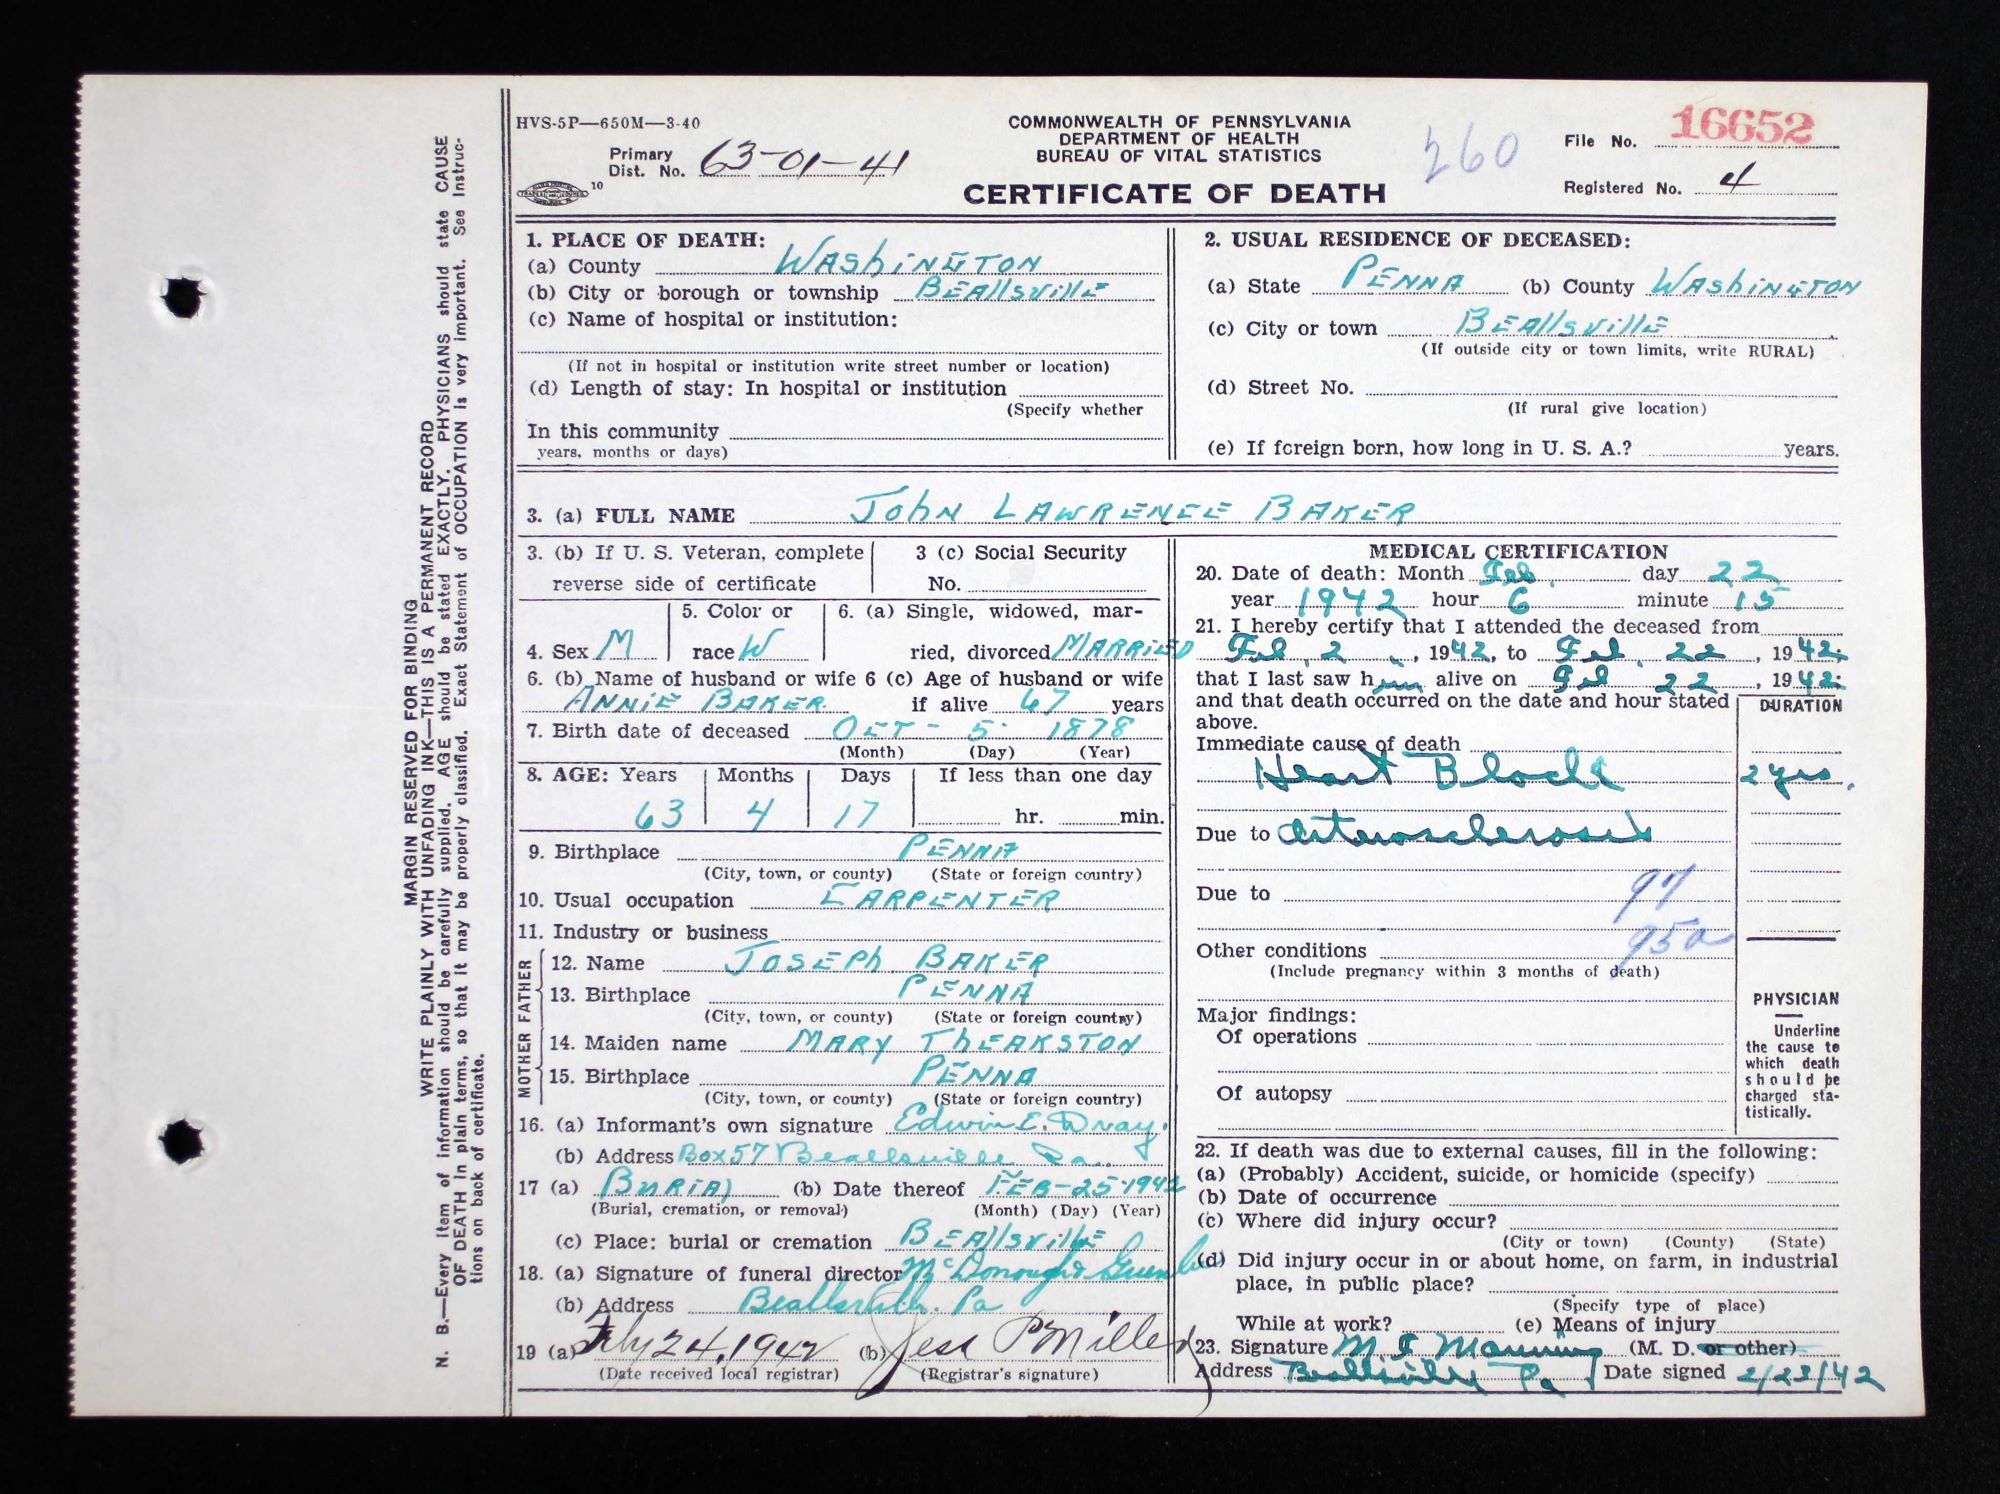 HVS-5P—650M—3-40
COMMONWEALTH OF PENNSYLVANIA
DEPARTMENT OF HEALTH
BUREAU OF VITAL STATISTICS
CERTIFICATE OF DEATH
Primary Dist. No. 63-01-41
10
260
File No. 16652
Registered No. 4
1. PLACE OF DEATH:
(a) County Washington
(b) City or borough or township Beallsville
(c) Name of hospital or institution:
(If not in hospital or institution write street number or location)
(d) Length of stay: In hospital or institution
(Specify whether
In this community
years, months or days)
2. USUAL RESIDENCE OF DECEASED:
(a) State Penna (b) County Washington
(c) City or town Beallsville
(If outside city or town limits, write RURAL)
(d) Street No.
(If rural give location)
(e) If foreign born, how long in U. S. A.? years.
3. (a) FULL NAME John Lawrence Baker
3. (b) If U. S. Veteran, complete
reverse side of certificate
3 (c) Social Security
No.
4. Sex M
5. Color or
race W
6. (a) Single, widowed, mar-
ried, divorced Married
6. (b) Name of husband or wife 6 (c) Age of husband or wife
Annie Baker if alive 67 years
7. Birth date of deceased Oct - 5 1878
(Month) (Day) (Year)
8. AGE: Years Months Days If less than one day
63 4 17 hr. min.
9. Birthplace Penna
(City, town, or county) (State or foreign country)
10. Usual occupation Carpenter
11. Industry or business
FATHER
12. Name Joseph Baker
13. Birthplace Penna
(City, town, or county) (State or foreign country)
MOTHER
14. Maiden name Mary Theakston
15. Birthplace Penna
(City, town, or county) (State or foreign country)
16. (a) Informant's own signature Edwin E. Dray.
(b) Address Box 57 Beallsville Pa.
17 (a) Burial (b) Date thereof Feb-25-1942
(Burial, cremation, or removal) (Month) (Day) (Year)
(c) Place: burial or cremation Beallsville
18. (a) Signature of funeral director McDonough &
(b) Address Beallsville. Pa
19 (a) Feby 24, 1942 (b) Jess P Miller
(Date received local registrar) (Registrar's signature)
MEDICAL CERTIFICATION
20. Date of death: Month Feb. day 22
year 1942 hour 6 minute 15
21. I hereby certify that I attended the deceased from
Feb 2, 1942, to Feb 22, 1942;
that I last saw him alive on Feb 22, 1942;
and that death occurred on the date and hour stated
above.
DURATION
Immediate cause of death
Heart Block 2 yrs.
Due to Arterosclerosis
Due to
97
95a
Other conditions
(Include pregnancy within 3 months of death)
Major findings:
Of operations
Of autopsy
PHYSICIAN
Underline
the cause to
which death
should be
charged sta-
tistically.
22. If death was due to external causes, fill in the following:
(a) (Probably) Accident, suicide, or homicide (specify)
(b) Date of occurrence
(c) Where did injury occur?
(City or town) (County) (State)
(d) Did injury occur in or about home, on farm, in industrial
place, in public place?
(Specify type of place)
While at work? (e) Means of injury
23. Signature M F Manning (M. D. or other)
Address Beallsville Pa Date signed 2/23/42
MARGIN RESERVED FOR BINDING
WRITE PLAINLY WITH UNFADING INK—THIS IS A PERMANENT RECORD
N. B.—Every item of information should be carefully supplied. AGE should be stated EXACTLY. PHYSICIANS should state CAUSE
OF DEATH in plain terms, so that it may be properly classified. Exact Statement of OCCUPATION is very important. See Instruc-
tions on back of certificate.